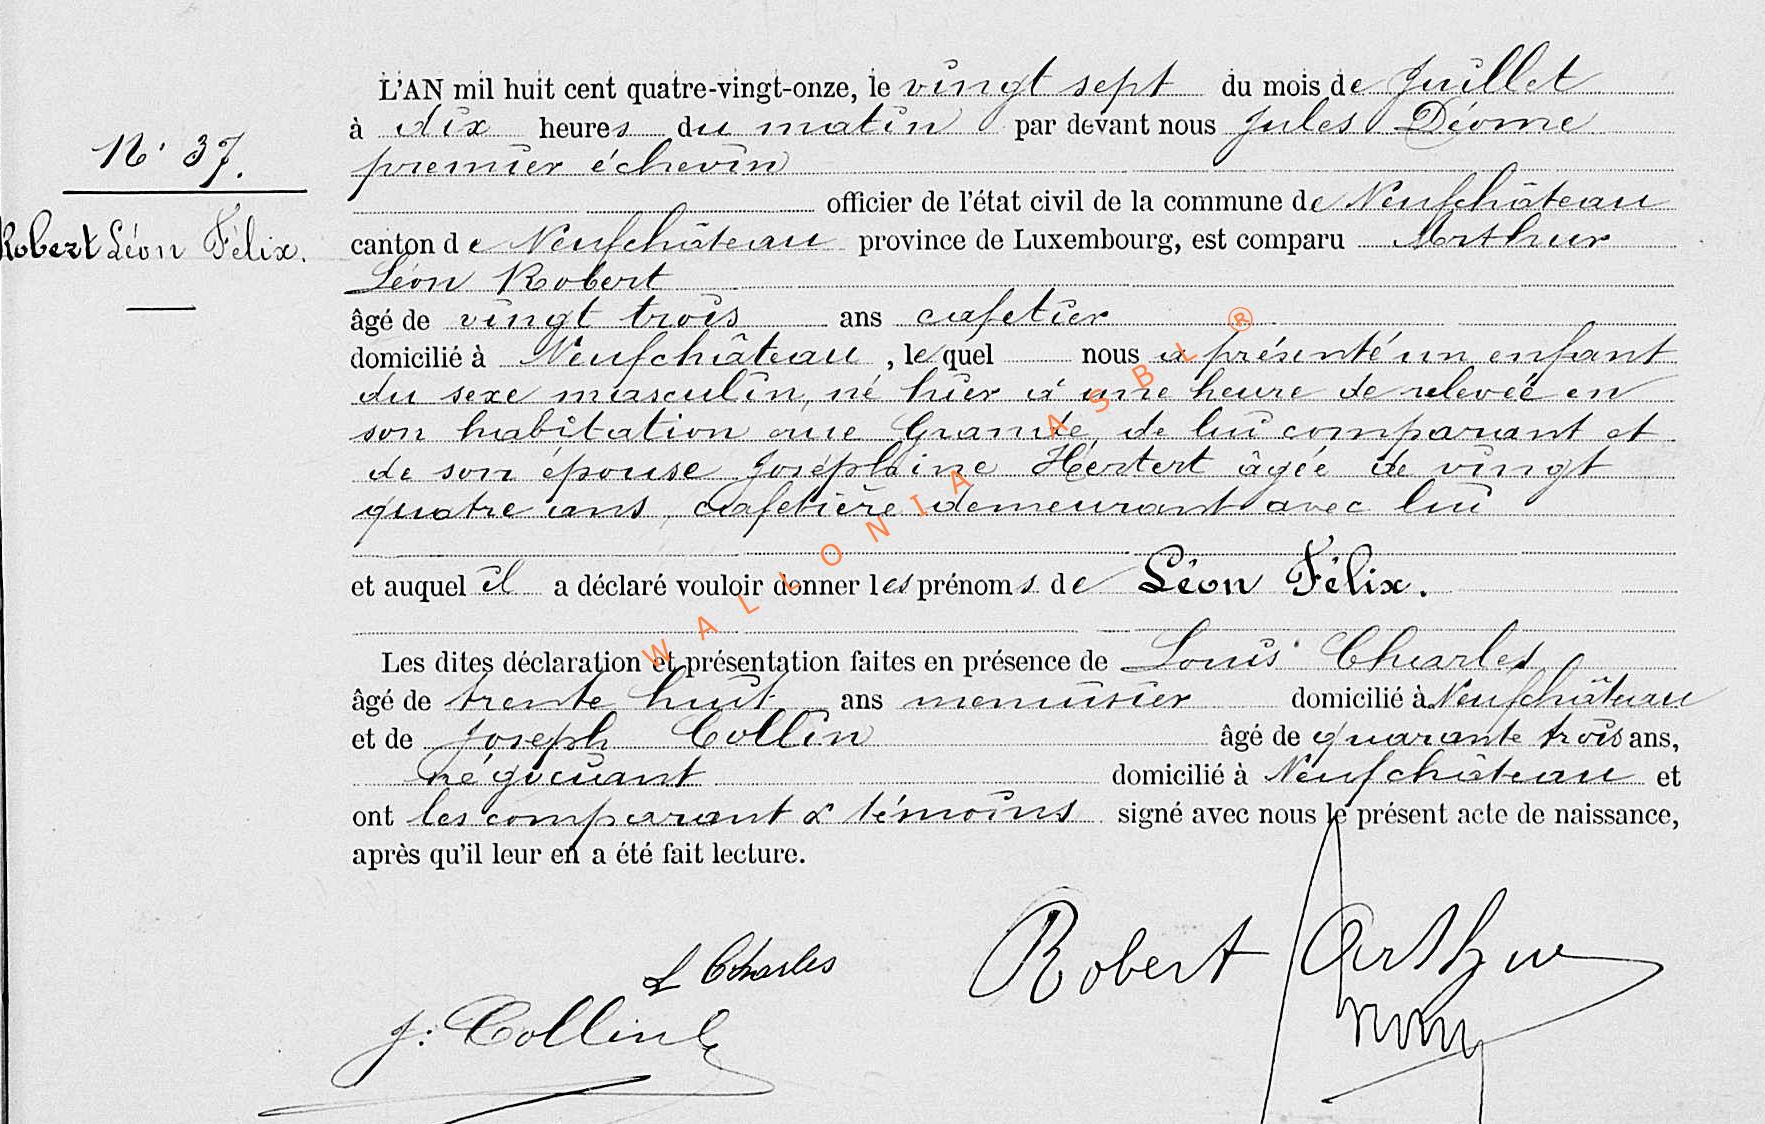 L'AN mil huit cent quatre-vingt-onze, le vingt sept du mois de Juillet
à dix heures du matin par devant nous Jules Déome
N° 37.
premier échevin
officier de l'état civil de la commune de Neufchâteau
Robert Léon Félix.
canton de Neufchâteau province de Luxembourg, est comparu Arthur
Léon Robert
âgé de vingt trois ans cafetier
domicilié à Neufchâteau, lequel nous a présenté un enfant
du sexe masculin, né hier à une heure de relevée en
son habitation rue Grande, de lui comparant et
de son épouse Joséphine Hertert âgée de vingt
quatre ans, cafetière demeurant avec lui
et auquel il a déclaré vouloir donner les prénoms de Léon Félix.
Les dites déclaration et présentation faites en présence de Louis Charles
âgé de trente huit ans menuisier domicilié à Neufchâteau
et de Joseph Collin âgé de quarante trois ans,
négociant domicilié à Neufchâteau et
ont les comparant & témoins signé avec nous le présent acte de naissance,
après qu'il leur en a été fait lecture.
L Charles
Robert Arthur
J. Collin
WALLONIA ASBL ®